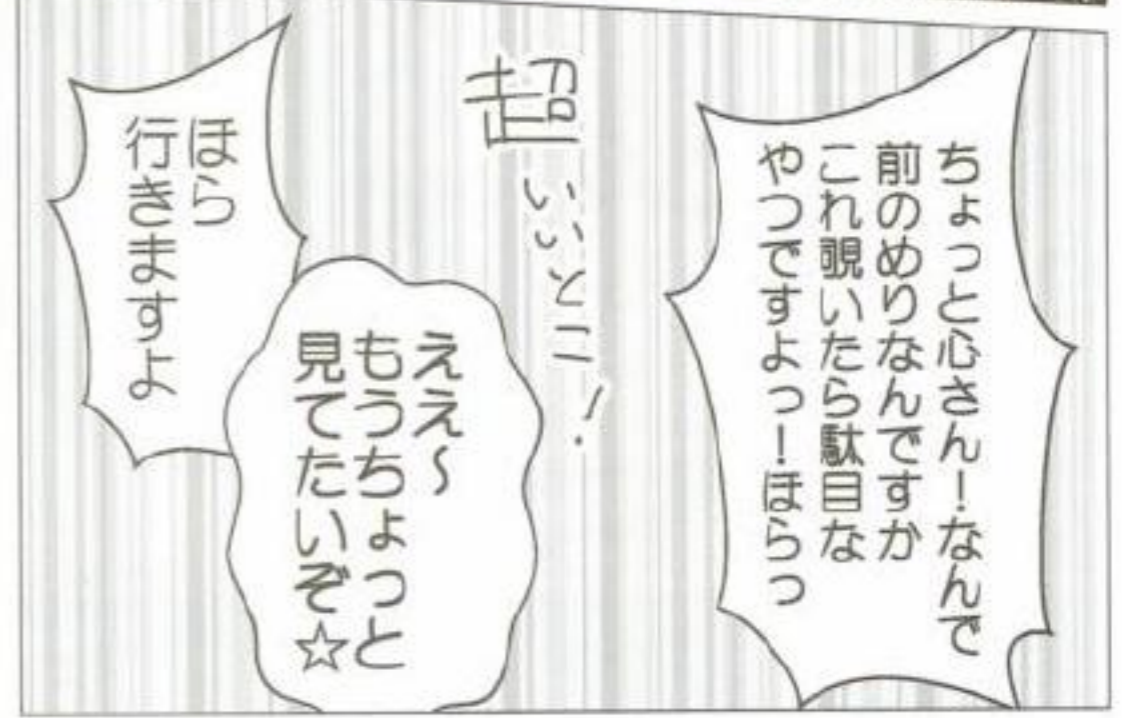 ちょっと心さん!なんで
前のめりなんですか
これ覗いたら駄目な
やつですよっ!ほらっ
超いいとこ!
ええ~
もうちょっと
見てたいぞ☆
ほら
行きますよ